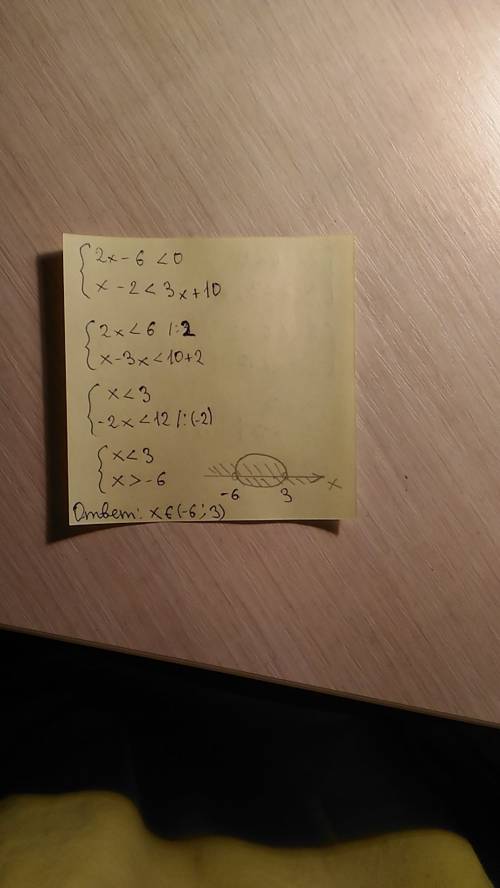 { 2x - 6 < 0
x - 2 < 3x + 10
{ 2x < 6 /:2
x - 3x < 10 + 2
{ x < 3
-2x < 12 /:(-2)
{ x < 3
x > -6
-6 3 x
Ответ: x ∈ (-6; 3)